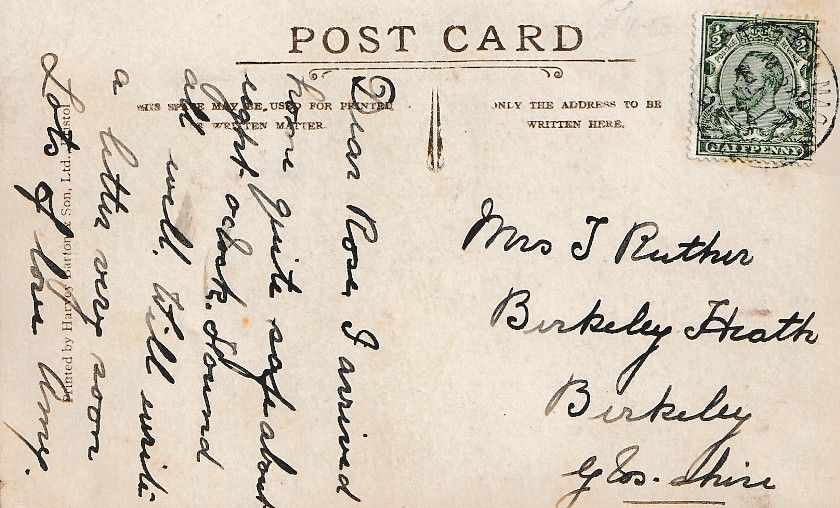 POST CARD
THIS SPACE MAY BE USED FOR PRINTED
OR WRITTEN MATTER.
ONLY THE ADDRESS TO BE
WRITTEN HERE.
HALFPENNY
Dear Rose, I arrived
home quite safe about
eight. oclock. Found
all well. Will write
a letter very soon
Lots of love Amy.
Printed by Harvey Barton & Son, Ltd., Bristol
Mrs J Ruther
Berkeley Heath
Berkeley
Glos-shire